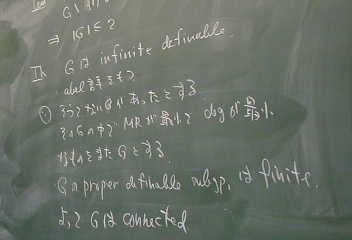 ⇒ |G| ≤ 2
Th G は infinite definable.
abel 群をもつ
∵) そうでない G があったとする
その G の中で MR が最小で deg が最小
なものをまた G とする.
G の proper definable subgp. は finite.
よって G は connected